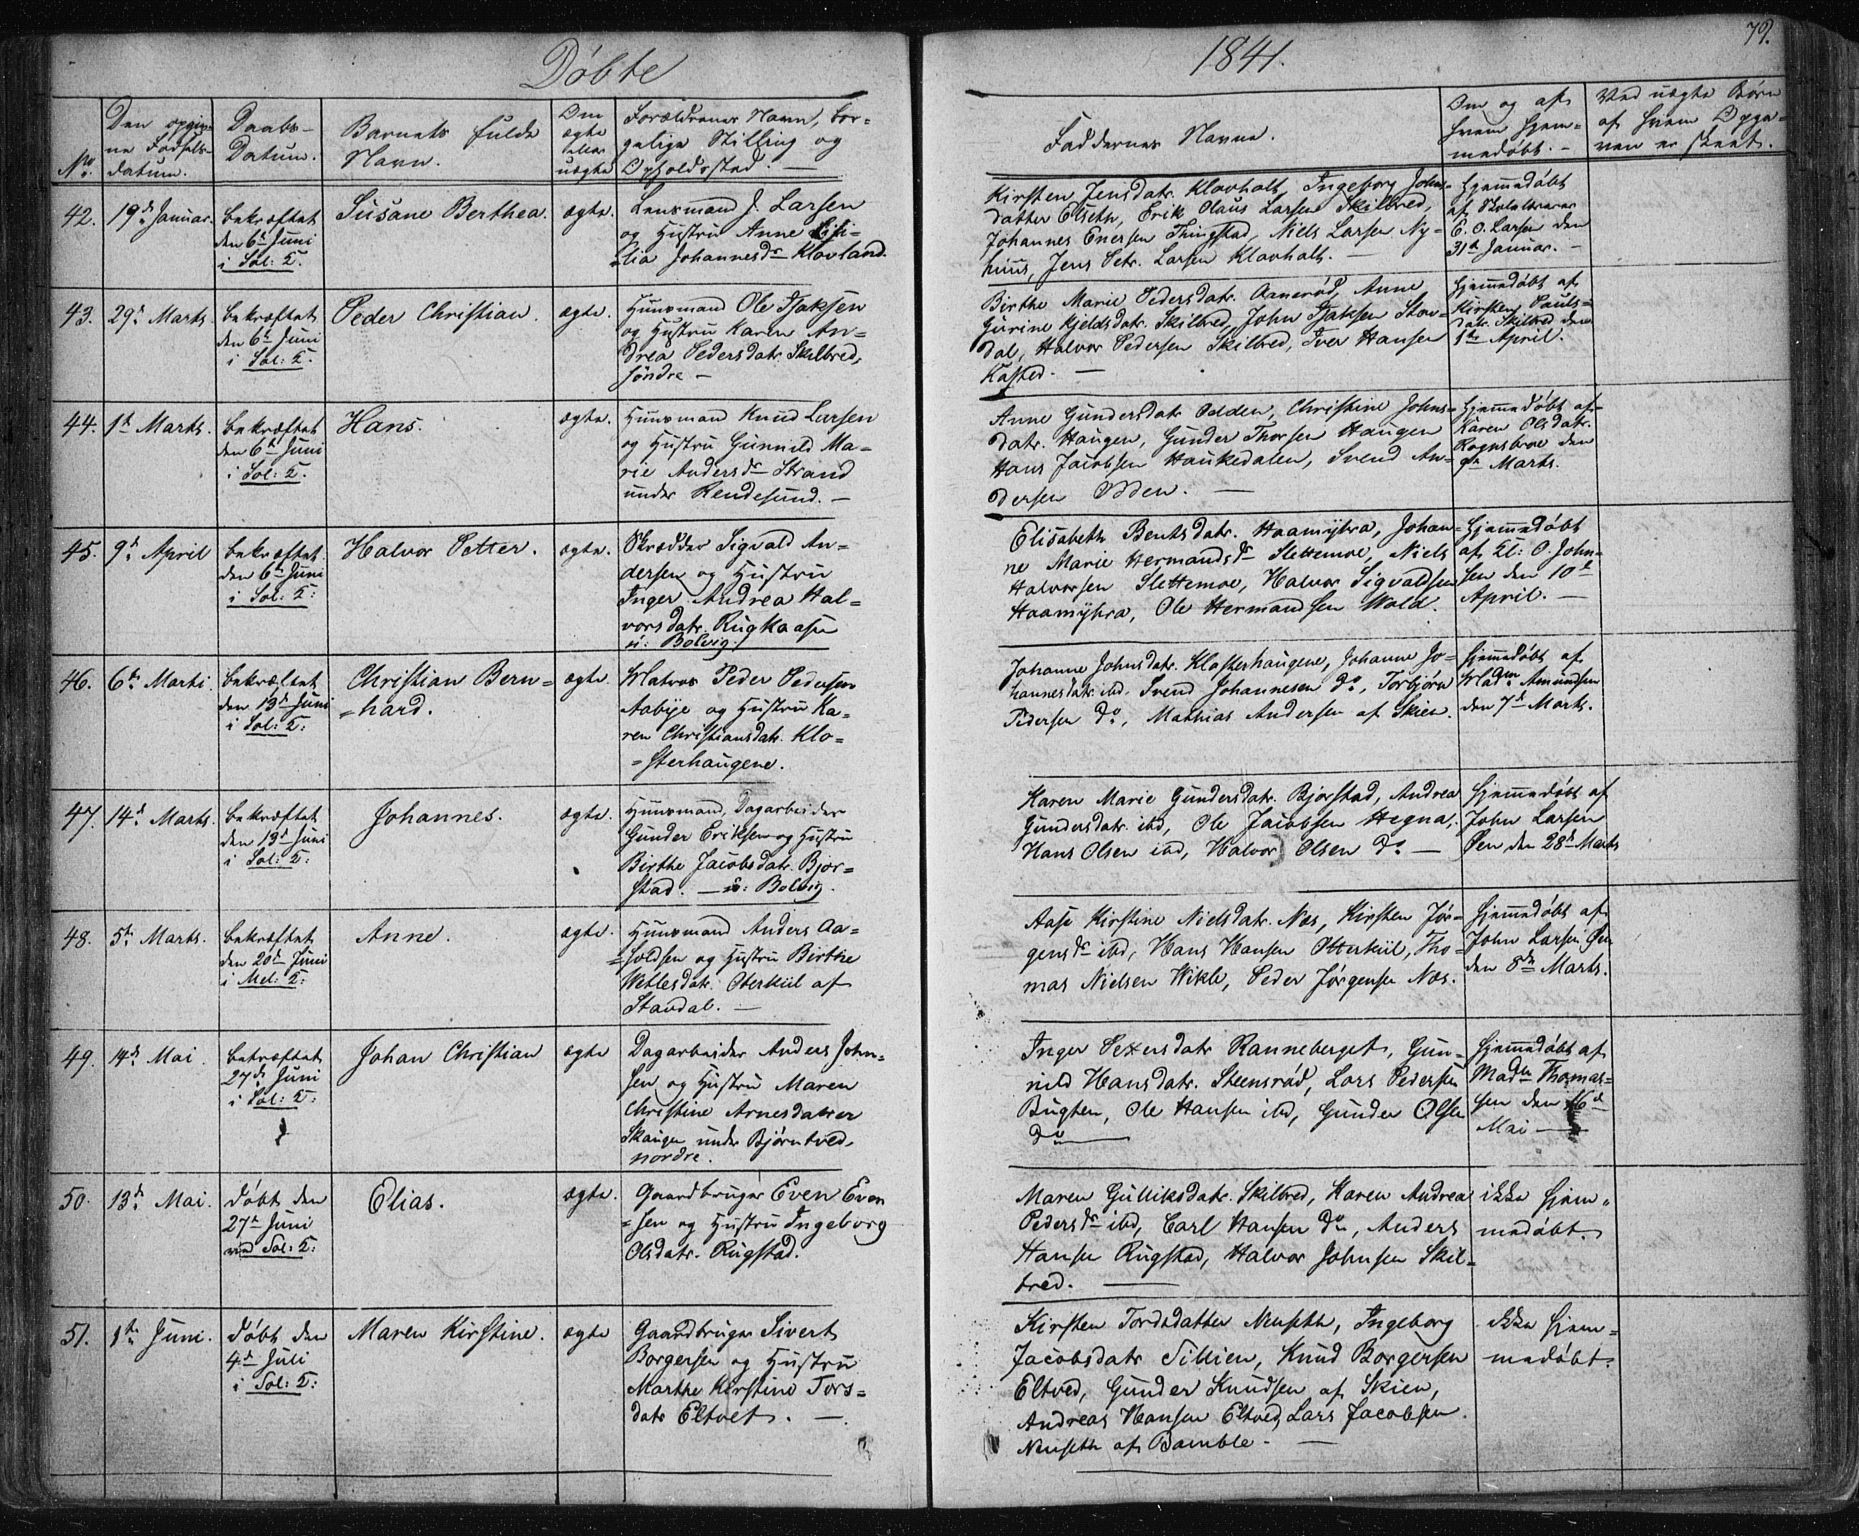 Døbte
1841.
79.
No.
Den opgiv-
ne Fødsels-
datum.
Daabs-
Datum.
Barnets fulde
Navn.
Om
ægte
eller
uægte
Forældrenes Navn, bor-
gerlige Stilling og
Opholdssted. —
Faddernes Navne.
Om og af
hvem hjem-
medøbt. —
Ved uægte Børn
af hvem Opga-
ven er skeet.
42.
19d Januar.
bekræftet
den 6te Juni
i Sol: K.
Susane Berthea.
ægte.
Lensmand J. Larsen
og Hustru Anne
Johannesdr Klovland.
Kirsten Jensdatr. Klovholt, Ingeborg Johns-
datter Elseth, Erik Olaus Larsen Skilbred,
Johannes Enersen Thingstad, Niels Larsen Ny-
huus, Jens Petr. Larsen Klovholt. —
Hjemmedøbt
af Skolelærer
C. O. Larsen den
31te Januar. —
43.
29d Marts.
bekræftet
den 6te Juni
i Sol: K.
Peder Christian.
ægte.
Huusmand Ole Isaksen
og Hustru Karen An-
drea Pedersdatr. Skilbred,
søndre —
Birthe Marie Pedersdatr. Aanerød, Anne
Gurine Kjeldsdatr. Skilbred, John Isaksen Stan-
dal, Halvor Pedersen Skilbred, Iver Hansen
Kasted. —
Hjemmedøbt af
Kirsten Pauls-
datr. Skilbred den
1te April.
44.
1te Marts.
bekræftet
den 6te Juni
i Sol: K.
Hans.
ægte.
Huusmand Knud Larsen
og Hustru Gunnild Ma-
rie Andersdr Strand
under Rendesund. —
Anne Gundersdatr. Odden, Christine Johns-
datr. Haugen, Gunder Thorsen Haugen
Hans Jacobsen Haukedalen, Svend An-
dersen Odden. —
Hjemmedøbt af
Karen Olsdatr.
Rognsbroe den
9de Marts.
45.
9d April
bekræftet
den 6te Juni
i Sol: K:
Halvor Petter.
ægte.
Skrædder Sigvald An-
dersen og Hustru
Inger Andrea Hal-
vorsdatr. Rugkaasa
u: Bolvig.
Elisabeth Bentsdatr. Haamyhra, Johan-
ne Marie Hermandsdr Slettemoe, Niels
Halvorsen Slettemoe, Halvor Sigvaldsen
Haamyhra, Ole Hermandsen Wold.
Hjemmedøbt
af Kl: O. John-
sen den 10d
April. —
46.
6te Marti
bekræftet
den 13d Juni
i Sol: K:
Christian Bern-
=hard.
ægte.
Matros Peder Pedersen
Aabye og Hustru Ka-
ren Christiansdatr. Klo-
=sterhaugene.
Johanne Johnsdatr. Klosterhaugene, Johanne Jo-
hannesdatr. ibd. Svend Johannesen do, Torbjørn
Pedersen do, Mathias Andersen af Skien.
Hjemmedøbt af
Madm Amundsen
den 7d Marts.
47.
14d Marts.
bekræftet
den 13d Juni
i Sol: K:
Johannes.
ægte.
Huusmand, Dagarbeider
Gunder Eriksen og Hustru
Birthe Jacobsdatr. Bjor-
stad. — u: Bolvig.
Karen Marie Gundersdatr. Bjorstad, Andrea
Gundersdatr. ibd, Ole Jacobsen Hegna,
Hans Olsen ibd, Halvor Olsen do —
Hjemmedøbt af
John Larsen
Øen den 28d Marts
48.
5te Marts.
bekræftet
den 20d Juni
i Mel: K:
Anne.
ægte.
Huusmand Anders Aa-
=soldsen og Hustru Birthe
Wetlesdatr. Oterkiil af
Standal. —
Aase Kirstine Nielsdatr. Næs, Kirsten Jør-
gensdr ibd, Hans Hansen Otterkiil, Tho-
mas Nielsen Wikle, Peder Jørgensen Næs.
Hjemmedøbt af
John Larsen Øen
den 8de Marts.
49.
14d Mai
bekræftet
27de Juni
i Sol: K:
Johan Christian
ægte
Dagarbeider Anders John-
sen og Hustru Maren
Christine Arnesdatter
Skaugen under Bjørntved,
nordre.
Inger Pettersdatr Ranneberget, Gun-
nild Hansdatr. Steensrød, Lars Pedersen
Bugten, Ole Hansen ibd, Gunder Olsen
do —
Hjemmedøbt af
Madm Thomas-
sen den 16d
Mai —
50.
13d Mai.
døbt den
27d Juni
ved Sol: K:
Elias.
ægte.
Gaardbruger Even Even
=sen og Hustru Ingeborg
Olsdatr. Rugstad.
Maren Gulliksdatr. Skilbred, Karen Andrea
Pedersdr ibd, Carl Hansen do, Anders
Hansen Rugstad, Halvor Johnsen Skil-
bred. —
ikke hjem-
medøbt.
51.
1te Juni.
døbt den
4d Juli
i Sol: K:
Maren Kirstine.
ægte
Gaardbruger Sivert
Borgersen og Hustru
Marthe Kirstine Tors-
datr Eltvet. —.
Kirsten Tordsdatter Nenseth, Ingeborg
Jacobsdatr Tillien, Knud Borgersen
Eltved, Gunder Knudsen af Skien,
Andreas Hansen Eltved, Lars Jacobsen
Nenseth af Bamble. —
ikke hjem-
medøbt.